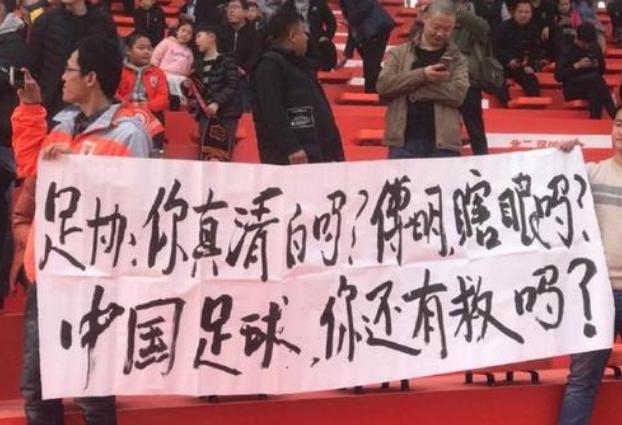 足协:你真清白吗?傅明,瞎眼吗?
中国足球,你还有救吗?